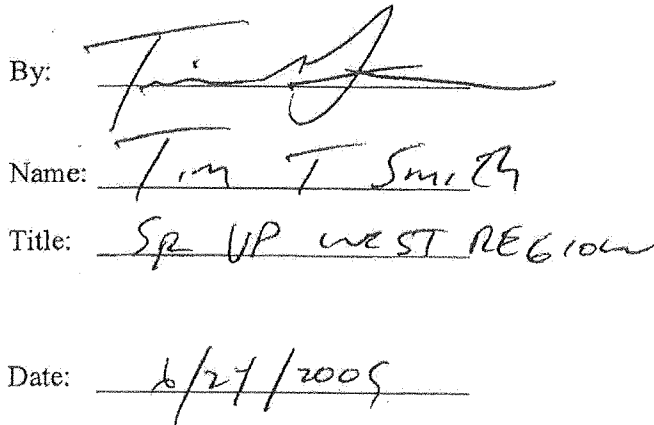 By:
Name: Tim T Smith
Title: SR VP WEST REGION
Date: